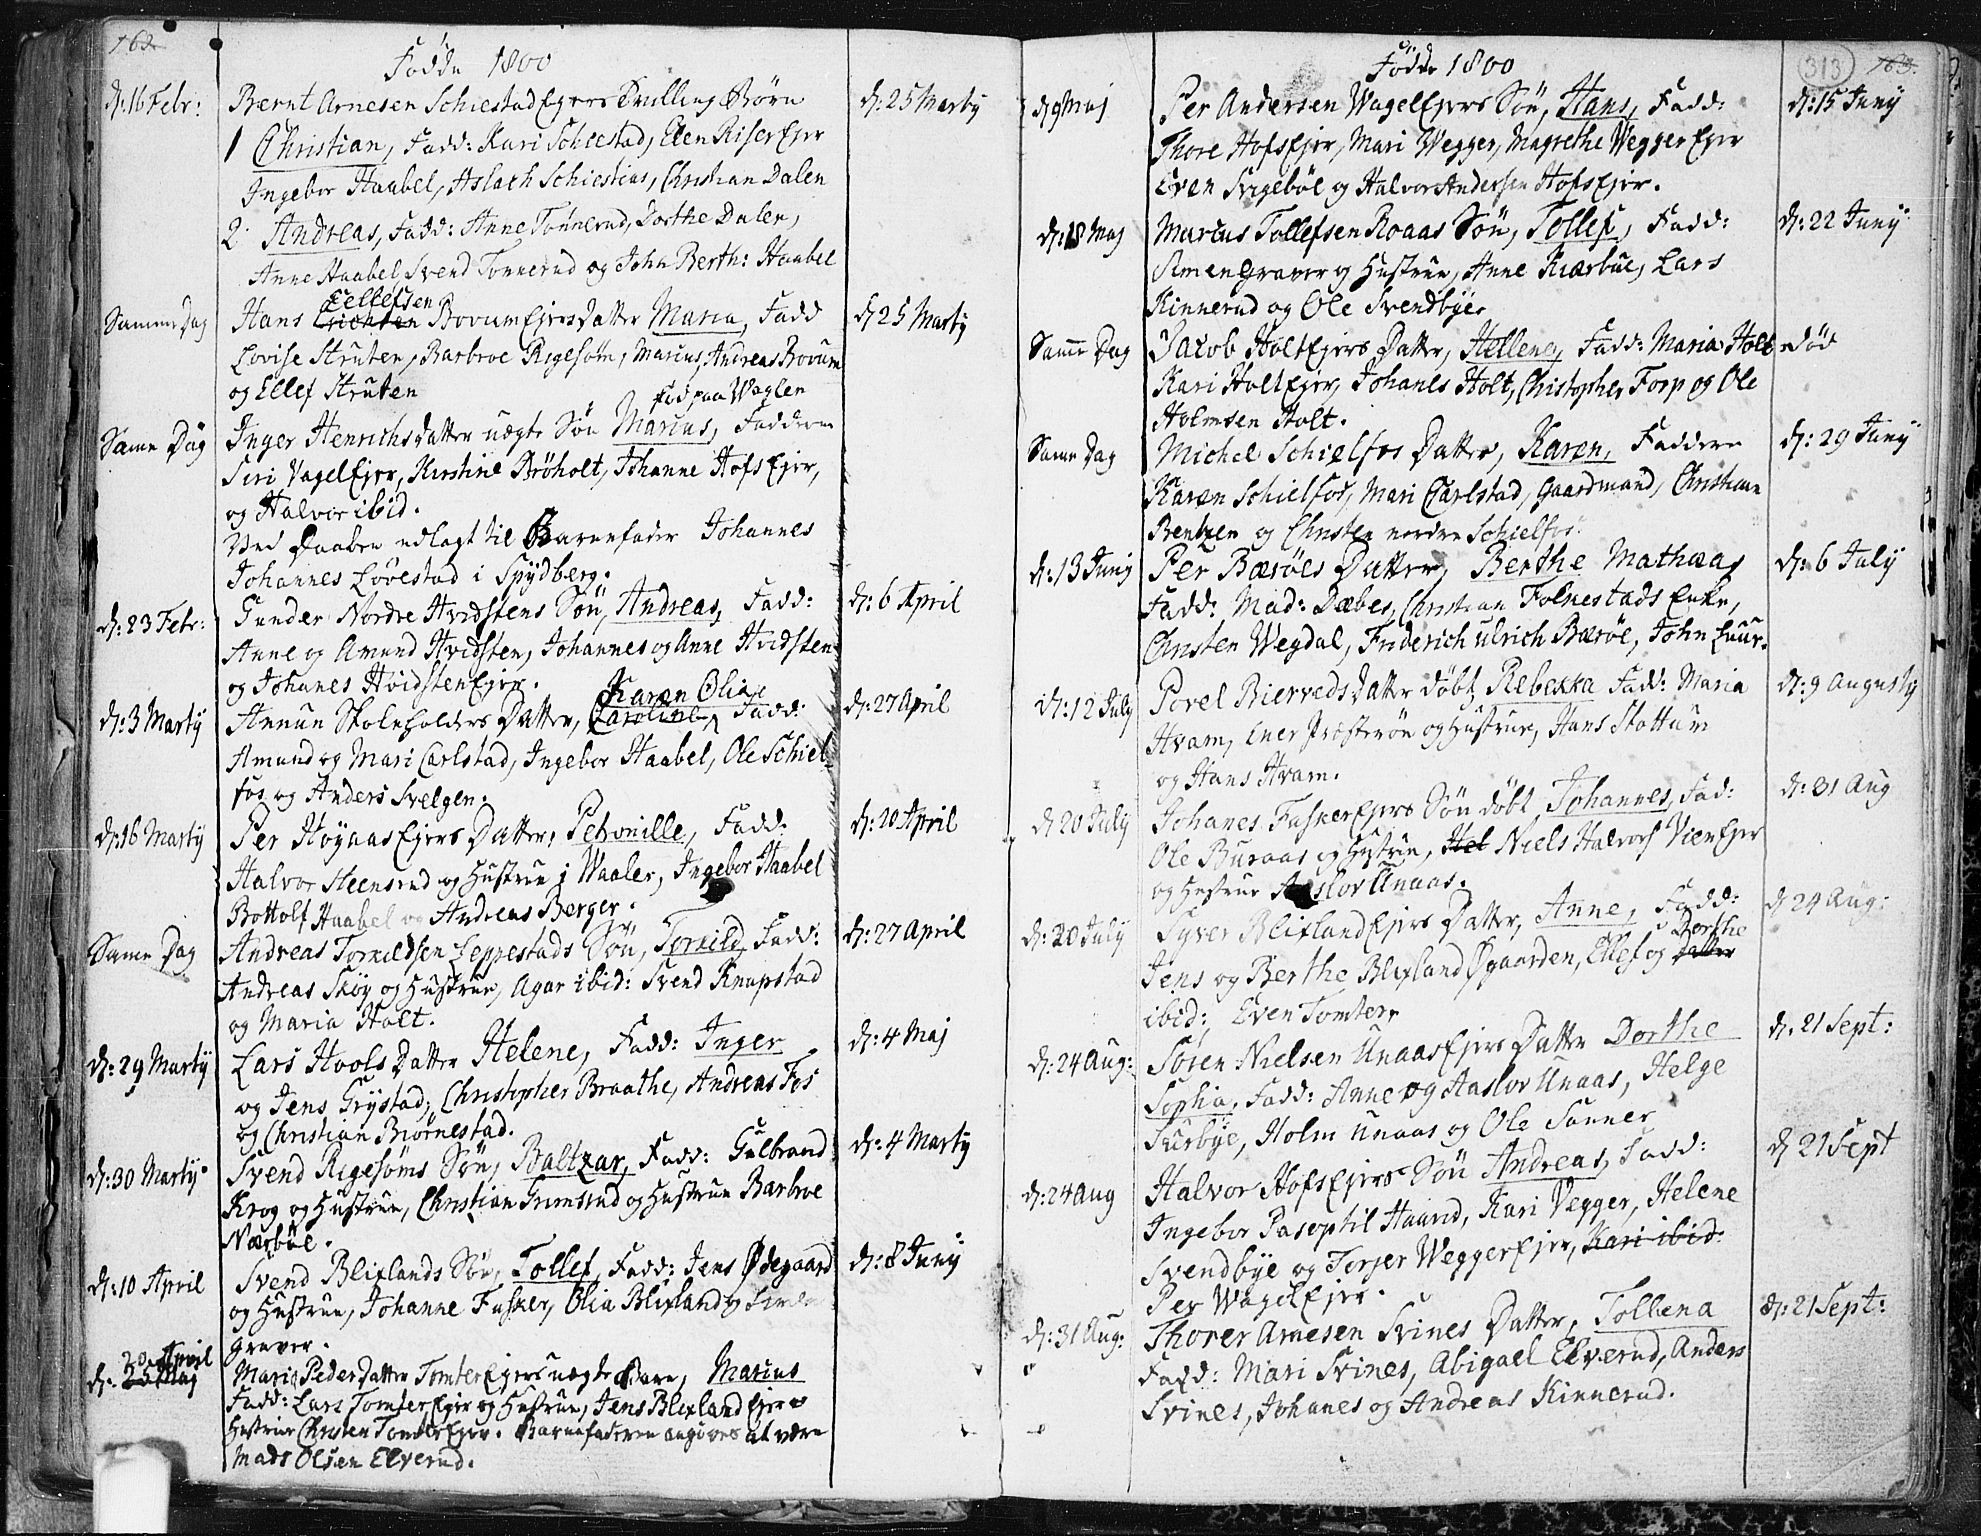 162.
Födde 1800
d: 16 Febr:
Bærnt Arnesen Schiestad Ejers Tvilling Börn
d: 25 Martÿ
1 Christian, Fadd: Kari Schiestad, Elen Riser Ejer
Ingebor Haabel, Aslach Schiestius, Christian Dalen
2. Andreas, Fadd: Anne Tönnerud, Dorthe Dalen,
Anne Haabel Svend Tonnerud og John Berth: Haabel
Ellefsen
Samme Dag
Hans Erichsen Bovum Ejers Datter Maria, Fadd
d 25 Martÿ
Lovise Struten, Barbroe Rigesöm, Marius, Andreas Bovum
og Ellef Struten
Föd paa Waglen
Same Dag
Inger Henrichsdatter uægte Sön Marius, Faddere
Siri Vagel Ejer, Kirstine Bröholt, Johanne Hofs Ejer,
og Halvor ibid.
Ved Daaben udlagt til Barnefader Johannes
Johannes Lövestad i Spÿdberg.
d: 23 Febr:
Gunder Nordre Hvidstens Sön, Andreas, Fadd:
d: 6 April
Anne og Amund Hvidsten, Johannes og Anne Hvidsten
og Johanes Hvidsten Ejer.
Karen Olia
d: 3 Martÿ
Annun Skoleholders Datter, Caroline, Fadd:
d: 27 April
Amund og Mari Carlstad, Ingebor Haabel, Ole Schiel-
fos og Anders Svelgen.
d: 16 Martÿ
Per Höÿaas Ejers Datter, Petronille, Fadd:
d: 20 April
Halvor Steensrud og Hustrue i Waaler, Ingebor Haabel
Bottolf Haabel og Andreas Berger.
Same Dag
Andreas Torkildsen Leppestads Sön, Torkild, Fadd:
d: 27 April
Andreas Sköÿ og Hustrue, Agar ibid: Svend Knapstad
og Maria Holt.
d: 29 Martÿ
Lars Hools Datter Helene, Fadd: Inger
d: 4 Maj
og Jens Grÿstad, Christopher Braathe, Andreas Fos
og Christian Biörnestad.
d: 30 Martÿ
Svend Rigesöms Sön, Baltzar, Fadd: Gulbrand
d: 4 Martÿ
Krog og Hustrue, Christian Grimsrud og Hustrue Barbroe
Nærböe.
d: 10 April
Svend Blixlands Sön, Tollef, Fadd: Jens Ödegaard
d: 8 Junÿ
og Hustrue, Johanne Fusker, Olia Blixland og Simen
Graver.
20 April
d: 25 Maj
Mari Pedersdatter Tomter Ejers uægte Barn, Marius
Fadd: Lars Tomter Ejer og Hustrue, Jens Blixland Ejer
Hustrue Christen Tomter Ejer. Barnefaderen angives at være
Mads Olsen Elverud.
313
163.
Födde 1800
d 9 Maj
Per Andersen Wagel Ejers Sön, Hans, Fadd:
d: 15 Junÿ
Thore Hofs Ejer, Mari Wegger, Magrethe Wegger Ejer
Even Svigeböl og Halvor Andersen Hofs Ejer.
d: 18 Maj
Marcus Tollefsen Roaas Sön, Tollef, Fadd:
d: 22 Junÿ
Simen Graver og Hustrue, Anne Kiærbue, Lars
Kinnerud og Ole Svendbÿe
Same Dag
Jacob Holt Ejers Datter, Hellene, Fadd: Maria Holt
död
Kari Holt Ejer, Johanes Holt, Christopher Forp og Ole
Holmsen Holt.
Same Dag
Michel Schielfos Datter, Karen, Faddere
d: 29 Junÿ
Karen Schielfos, Mari Carlstad, Gaardmand, Christian
Bentzen og Christen nordre Schielfos.
d: 13 Junÿ
Per Bæröes Datter, Berthe Mathæa
d: 6 Julÿ
Fadd: Mad: Dæbes, Christian Folkestads Enke,
Christen Wegdal, Friderich Ulrich Bæröe, John Luur.
d: 12 Julÿ
Povel Biervedsdatter döbt Rebekka Fadd: Maria
d: 9 Augustÿ
Hvam, Ener Prösteröe og Hustrue, Hans Stottum
og Hans Hvam.
d 20 Julÿ
Johanes Fusker Ejers Sön döbt Johannes, Fad:
d: 31 Aug
Ole Buraas og Hustrue, Hel Niels Halvors Vien Ejer
og Hustrue Aaslov Unaas.
d: 20 Julÿ
Sÿver Blixland Ejers Datter, Anne, Fadd:
d 24 Aug:
Dorthe
Jens og Berthe Blixland Ögaarden, Ellef og Datter
ibid: Even Tomter
d: 24 Aug:
Sören Nielsen Unaas Ejers Datter Dorthe
d: 21 Sept:
Sophia, Fadd: Anne og Aaslov Unaas, Helge
Huusbÿe, Holm Unaas og Ole Sanner
d: 24 Aug
Halvor Hofs Ejers Sön Andreas, Fadd:
d 21 Sept
Ingebor Pasoptil Haarid, Kari Vegger, Helene
Svendbÿe og Torjer Wegger Ejer, Kari ibid:
Per Wagel Ejer.
d: 31 Aug:
Thorer Arnesen Svines Datter, Tollena
d: 21 Sept:
Fadd: Mari Svines, Abigael Elverud, Anders
Svines, Johanes og Andreas Kinnerud.